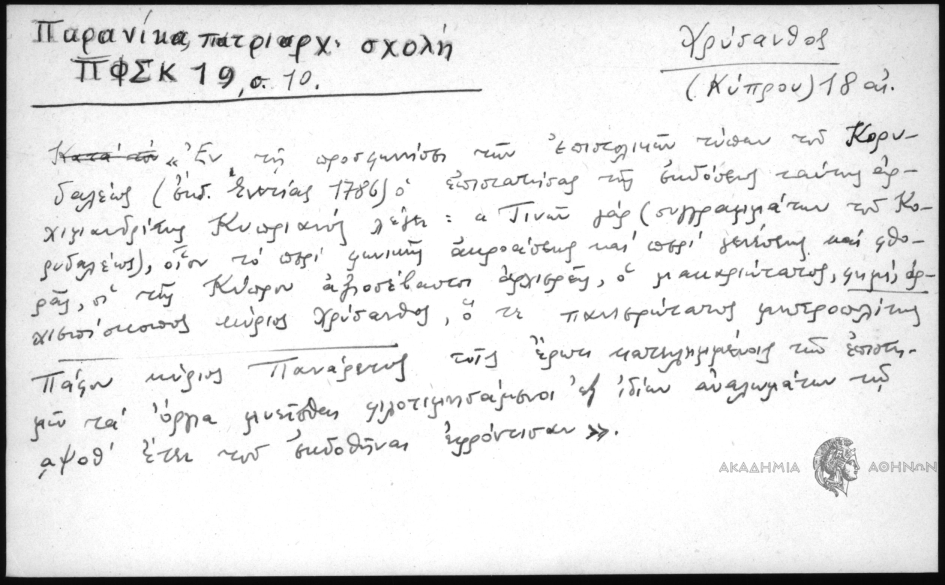 Παρανίκα, πατριαρχ. σχολή
ΠΦΣΚ 19, σ. 10.
Χρύσανθος
(Κύπρου) 18 αἰ.
Κατὰ τὸ «Ἐν τῇ προσφωνήσει τῶν Ἐπιστολικῶν τύπων τοῦ Κορυ-
δαλέως (ἐκδ. Ἐνετίας 1786) ὁ ἐπιστατήσας τῆς ἐκδόσεως ταύτης ἀρ-
χιμανδρίτης Κυπριανὸς λέγει: «Τινῶν γάρ (συγγραμμάτων τοῦ Κο-
ρυδαλέως), οἷον τὸ περὶ φυσικῆς ἀκροάσεως καὶ περὶ γενέσεως καὶ φθο-
ρᾶς, οἱ τῆς Κύπρου ἀξιοσέβαστοι ἀρχιερεῖς, ὁ μακαριώτατος, φημί, ἀρ-
χιεπίσκοπος κύριος Χρύσανθος, ὅ τε πανιερώτατος μητροπολίτης
Πάφου κύριος Πανάρετος τοῖς ἔρωτι κατειλημμένοις τῶν ἐπιστη-
μῶν τὰ ὄργια μυεῖσθαι φιλοτιμησάμενοι ἐξ ἰδίων ἀναλωμάτων τῷ
͵αψοθ′ ἔτει τοῦ ἐκδοθῆναι ἐφρόντισαν».
ΑΚΑΔΗΜΙΑ ΑΘΗΝΩΝ